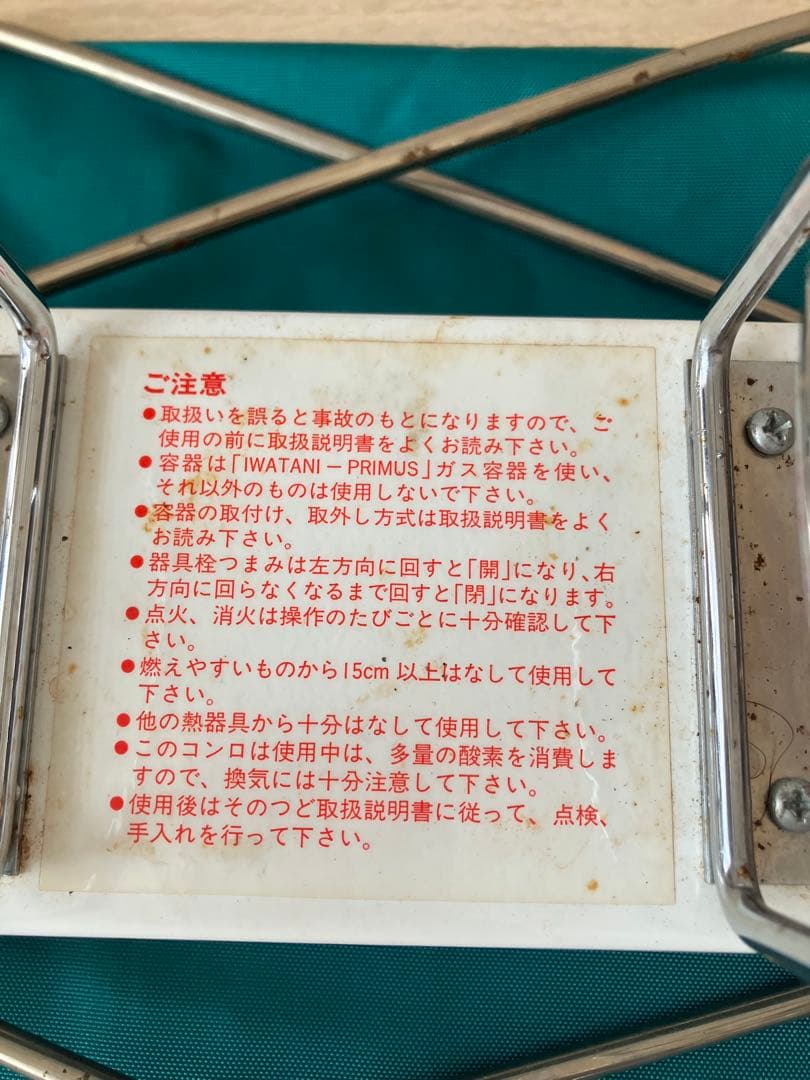 ご注意
●取扱いを誤ると事故のもとになりますので、ご
使用の前に取扱説明書をよくお読み下さい。
●容器は「IWATANI－PRIMUS」ガス容器を使い、
それ以外のものは使用しないで下さい。
●容器の取付け、取外し方式は取扱説明書をよく
お読み下さい。
●器具栓つまみは左方向に回すと「開」になり、右
方向に回らなくなるまで回すと「閉」になります。
●点火、消火は操作のたびごとに十分確認して下
さい。
●燃えやすいものから15cm 以上はなして使用して
下さい。
●他の熱器具から十分はなして使用して下さい。
●このコンロは使用中は、多量の酸素を消費しま
すので、換気には十分注意して下さい。
●使用後はそのつど取扱説明書に従って、点検、
手入れを行って下さい。